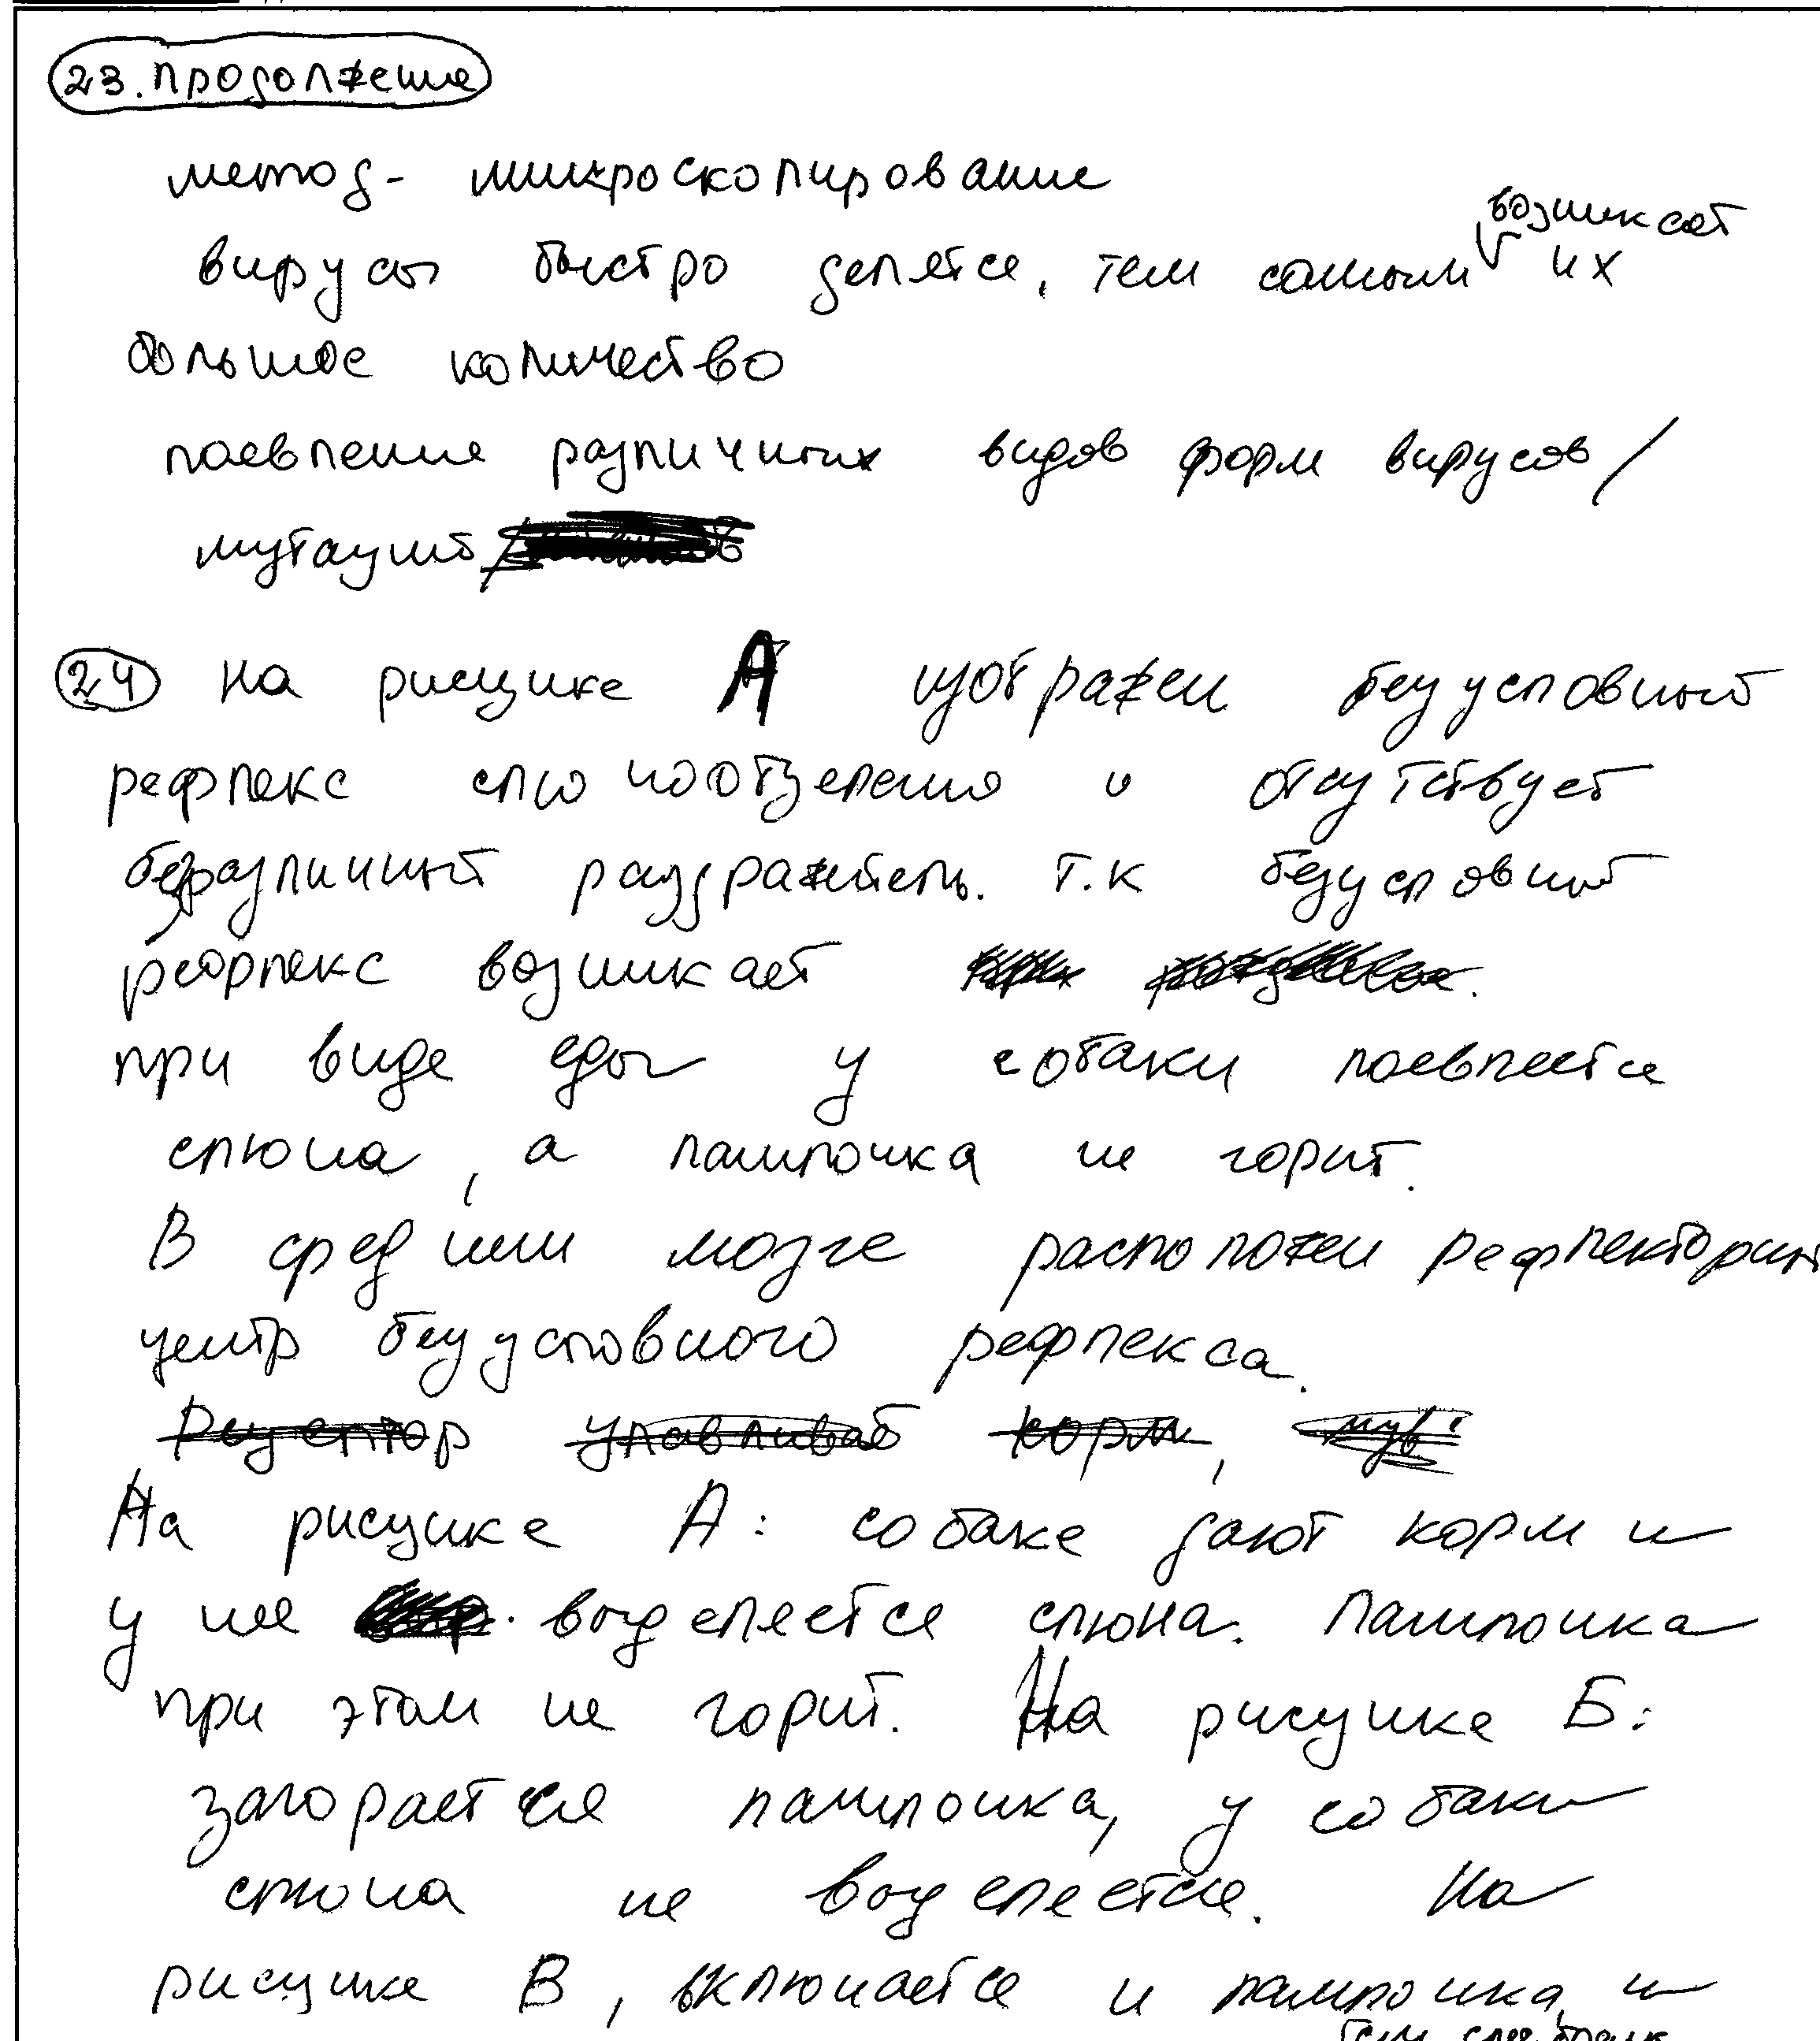 23. продолжение
метод - микроскопирование
возникает
вирусы быстро делятся, тем самым их
большое количество
появление различных видов форм вирусов /
мутаций
24 На рисунке А изображен безусловный
рефлекс слюноотделения и отсутствует
безразличный раздражитель. т.к безусловный
рефлекс возникает
при виде еды у собаки появляется
слюна, а лампочка не горит.
В среднем мозге расположен рефлекторный
центр безусловного рефлекса.
Рецептор улавливает корм,
На рисунке А: собаке дают корм и
у нее выделяется слюна. Лампочка
при этом не горит. На рисунке Б:
загорается лампочка, у собаки
слюна не выделяется. На
рисунке В, включается и лампочка, и